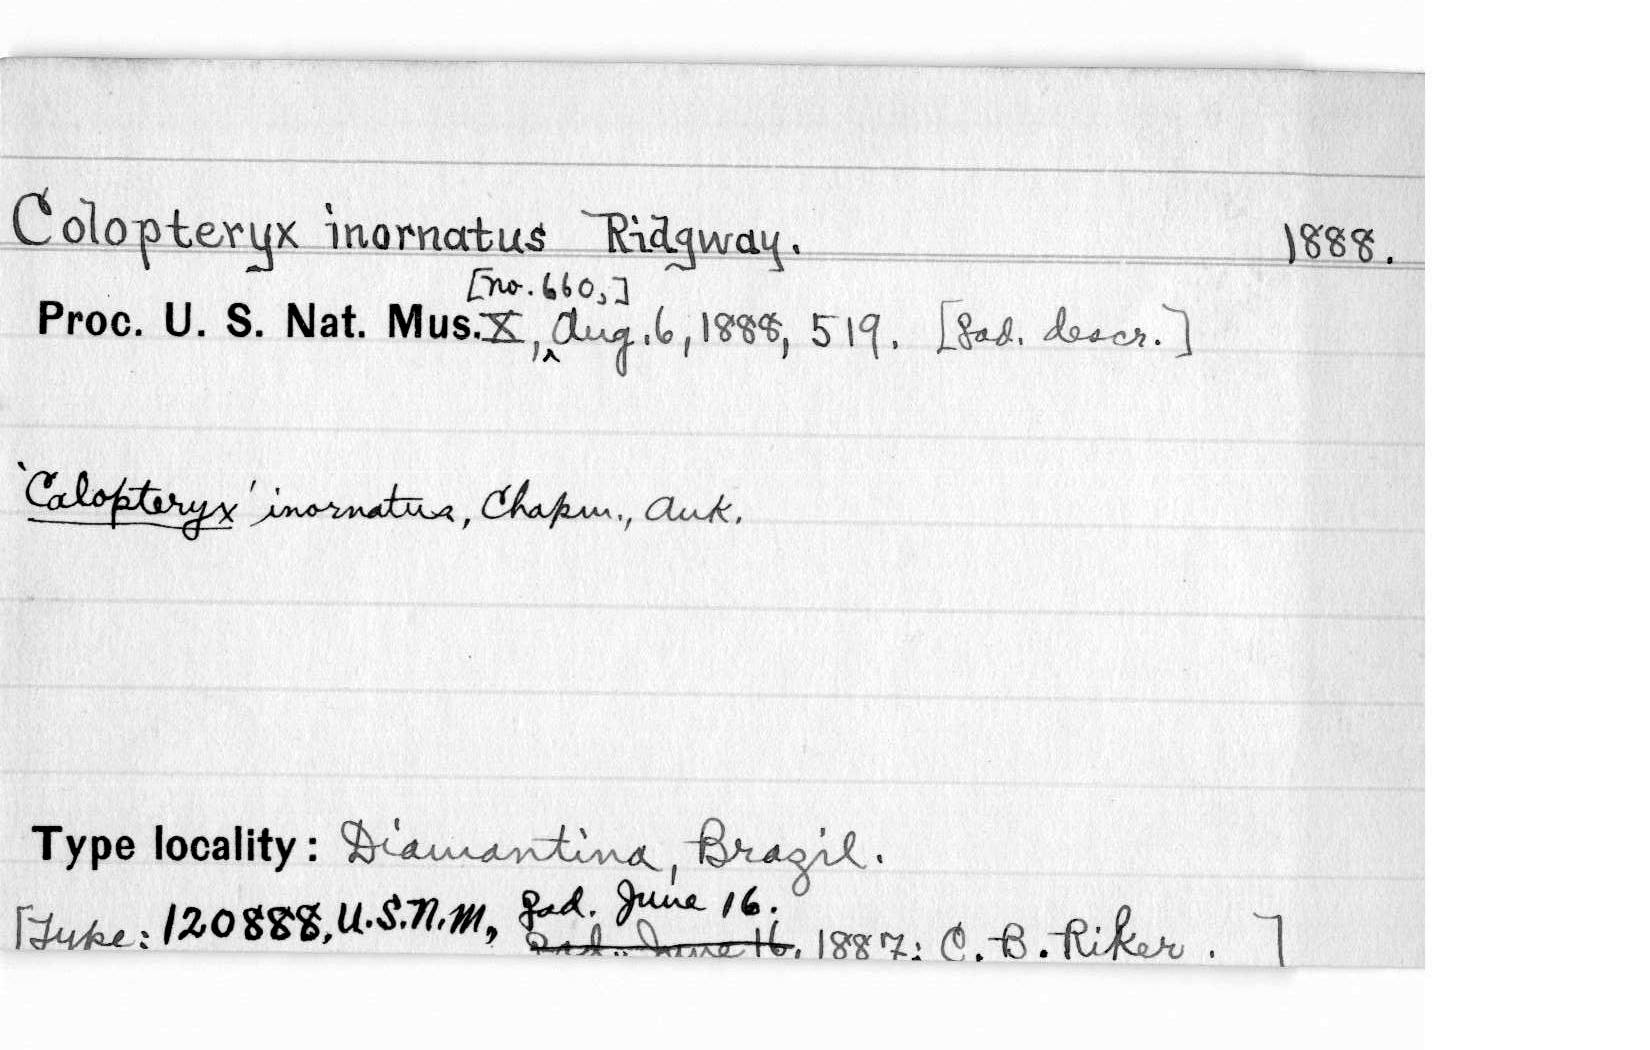 Colopteryx inornatus Ridgway. 1888.
[no. 660,]
Proc. U. S. Nat. Mus. X, ‸ Aug. 6, 1888, 519. [♂ad. descr.]
'Calopteryx' inornatus, Chapm., Auk.
Type locality: Diamantina, Brazil.
♂ad. June 16.
[Type: 120888, U.S.N.M., ♂ad., June 16, 1887; C. B. Riker. ]